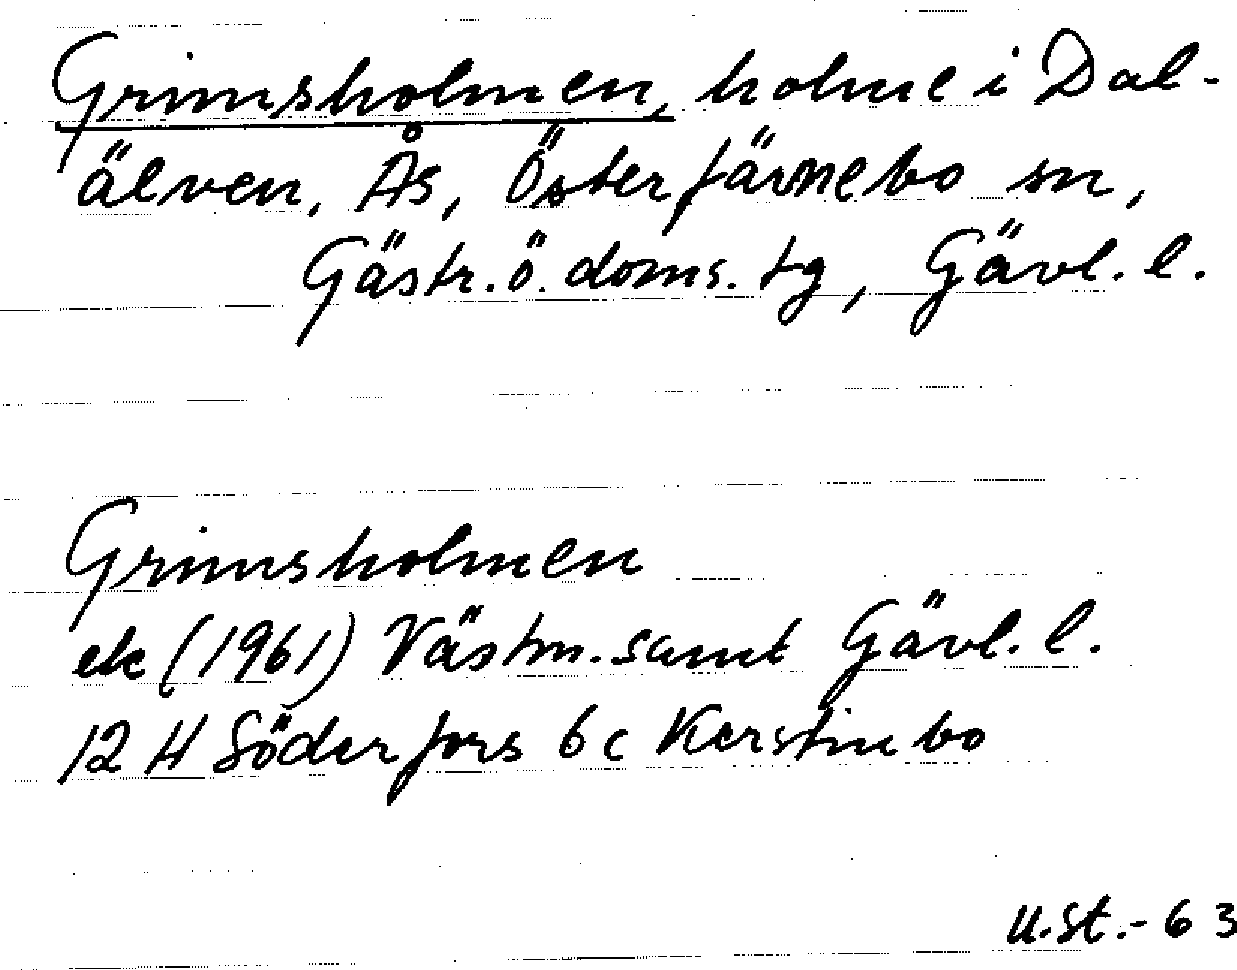 Grimsholmen, holme i Dal-
älven, Ås, Österfärnebo sn,
Gästr. ö. doms. tg, Gävl. l.
Grimsholmen
ek (1961) Västm. samt Gävl. l.
12 H Söderfors 6 c Kerstinbo
U.St.-63